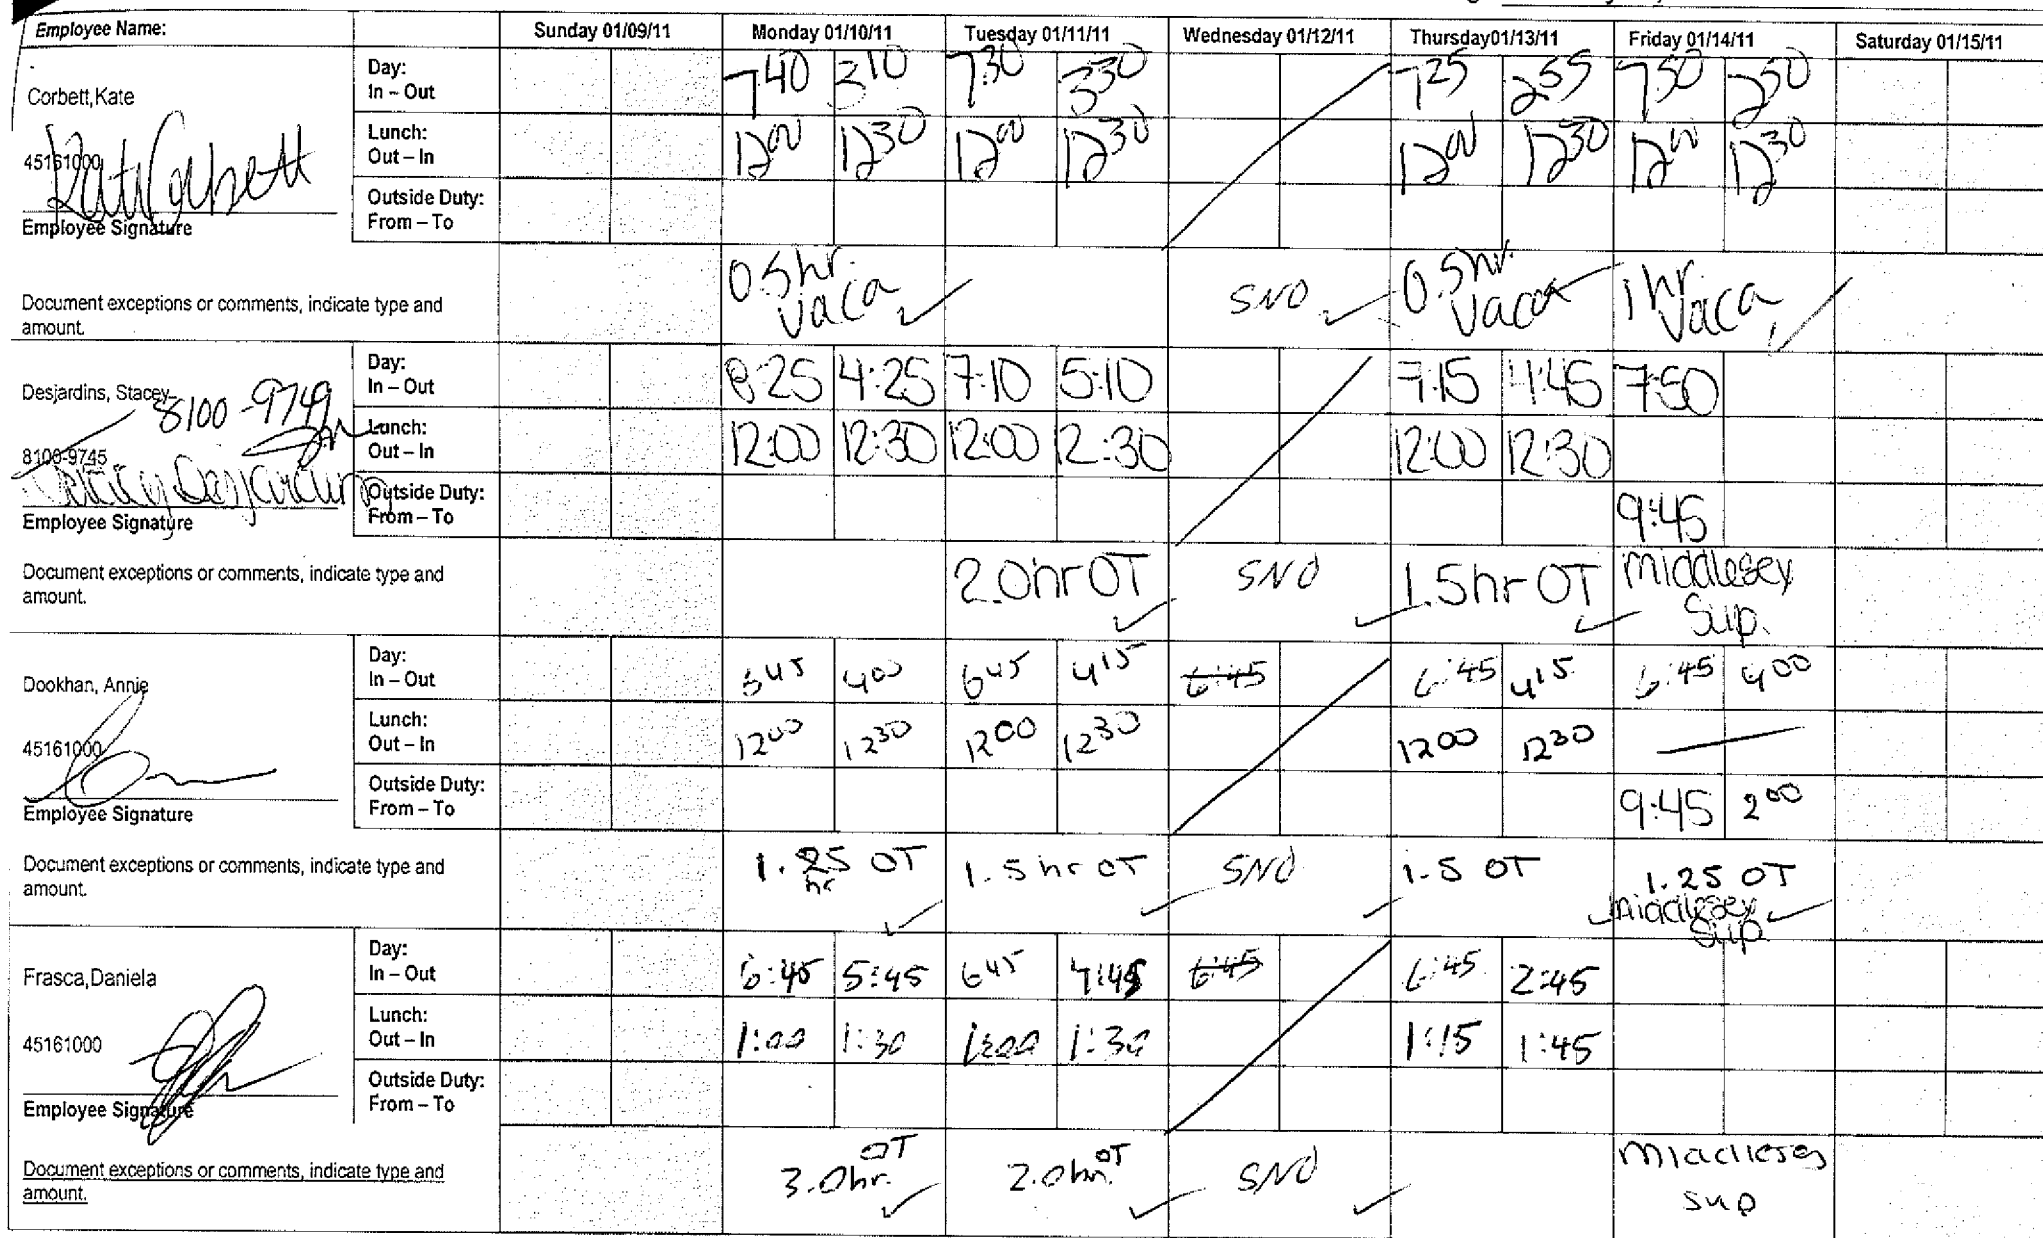 Employee Name: Sunday 01/09/11 Monday 01/10/11 Tuesday 01/11/11 Wednesday 01/12/11 Thursday01/13/11 Friday 01/14/11 Saturday 01/15/11
Corbett,Kate
45161000
Kate Corbett
Employee Signature
Day:
In – Out 7 40 3 10 7 30 3 30 7 25 2 55 7 50 2 50
Lunch:
Out – In 12 00 12 30 12 00 12 30 12 00 12 30 12 00 12 30
Outside Duty:
From – To
Document exceptions or comments, indicate type and
amount.
0.5 hr.
vaca
SNO
0.5 hr.
vaca
1 hr.
vaca
Desjardins, Stacey
8100-9749
8100-9745
Stacey Desjardins
Employee Signature
Day:
In – Out 8:25 4:25 7:10 5:10 7:15 4:45 7:50
Lunch:
Out – In 12:00 12:30 12:00 12:30 12:00 12:30
Outside Duty:
From – To 9:45
Document exceptions or comments, indicate type and
amount.
2.0hr OT
SNO
1.5hr OT
Middlesex
Sup.
Dookhan, Annie
45161000
Employee Signature
Day:
In – Out 6 45 4 00 6 45 4 15 6:45 6:45 4 15 6:45 4 00
Lunch:
Out – In 12 00 12 30 12 00 12 30 12 00 12 30
Outside Duty:
From – To 9:45 2 00
Document exceptions or comments, indicate type and
amount.
1.25 OT
hr
1.5 hr OT
SNO
1.5 OT
1.25 OT
Middlesex
Sup
Frasca,Daniela
45161000
Employee Signature
Day:
In – Out 6:45 5:45 6 45 4:45 6:45 6:45 2:45
Lunch:
Out – In 1:00 1:30 1:00 1:30 1:15 1:45
Outside Duty:
From – To
Document exceptions or comments, indicate type and
amount.
3.0hr. OT
2.0hr. OT
SNO
Middlesex
sup